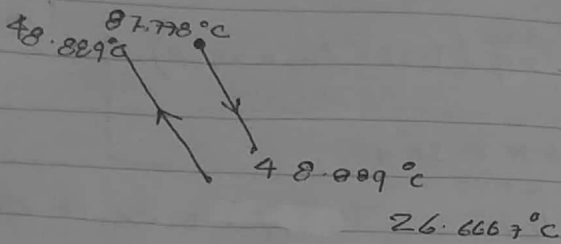 48.889°C
87.778°C
48.889°C
26.6667°C